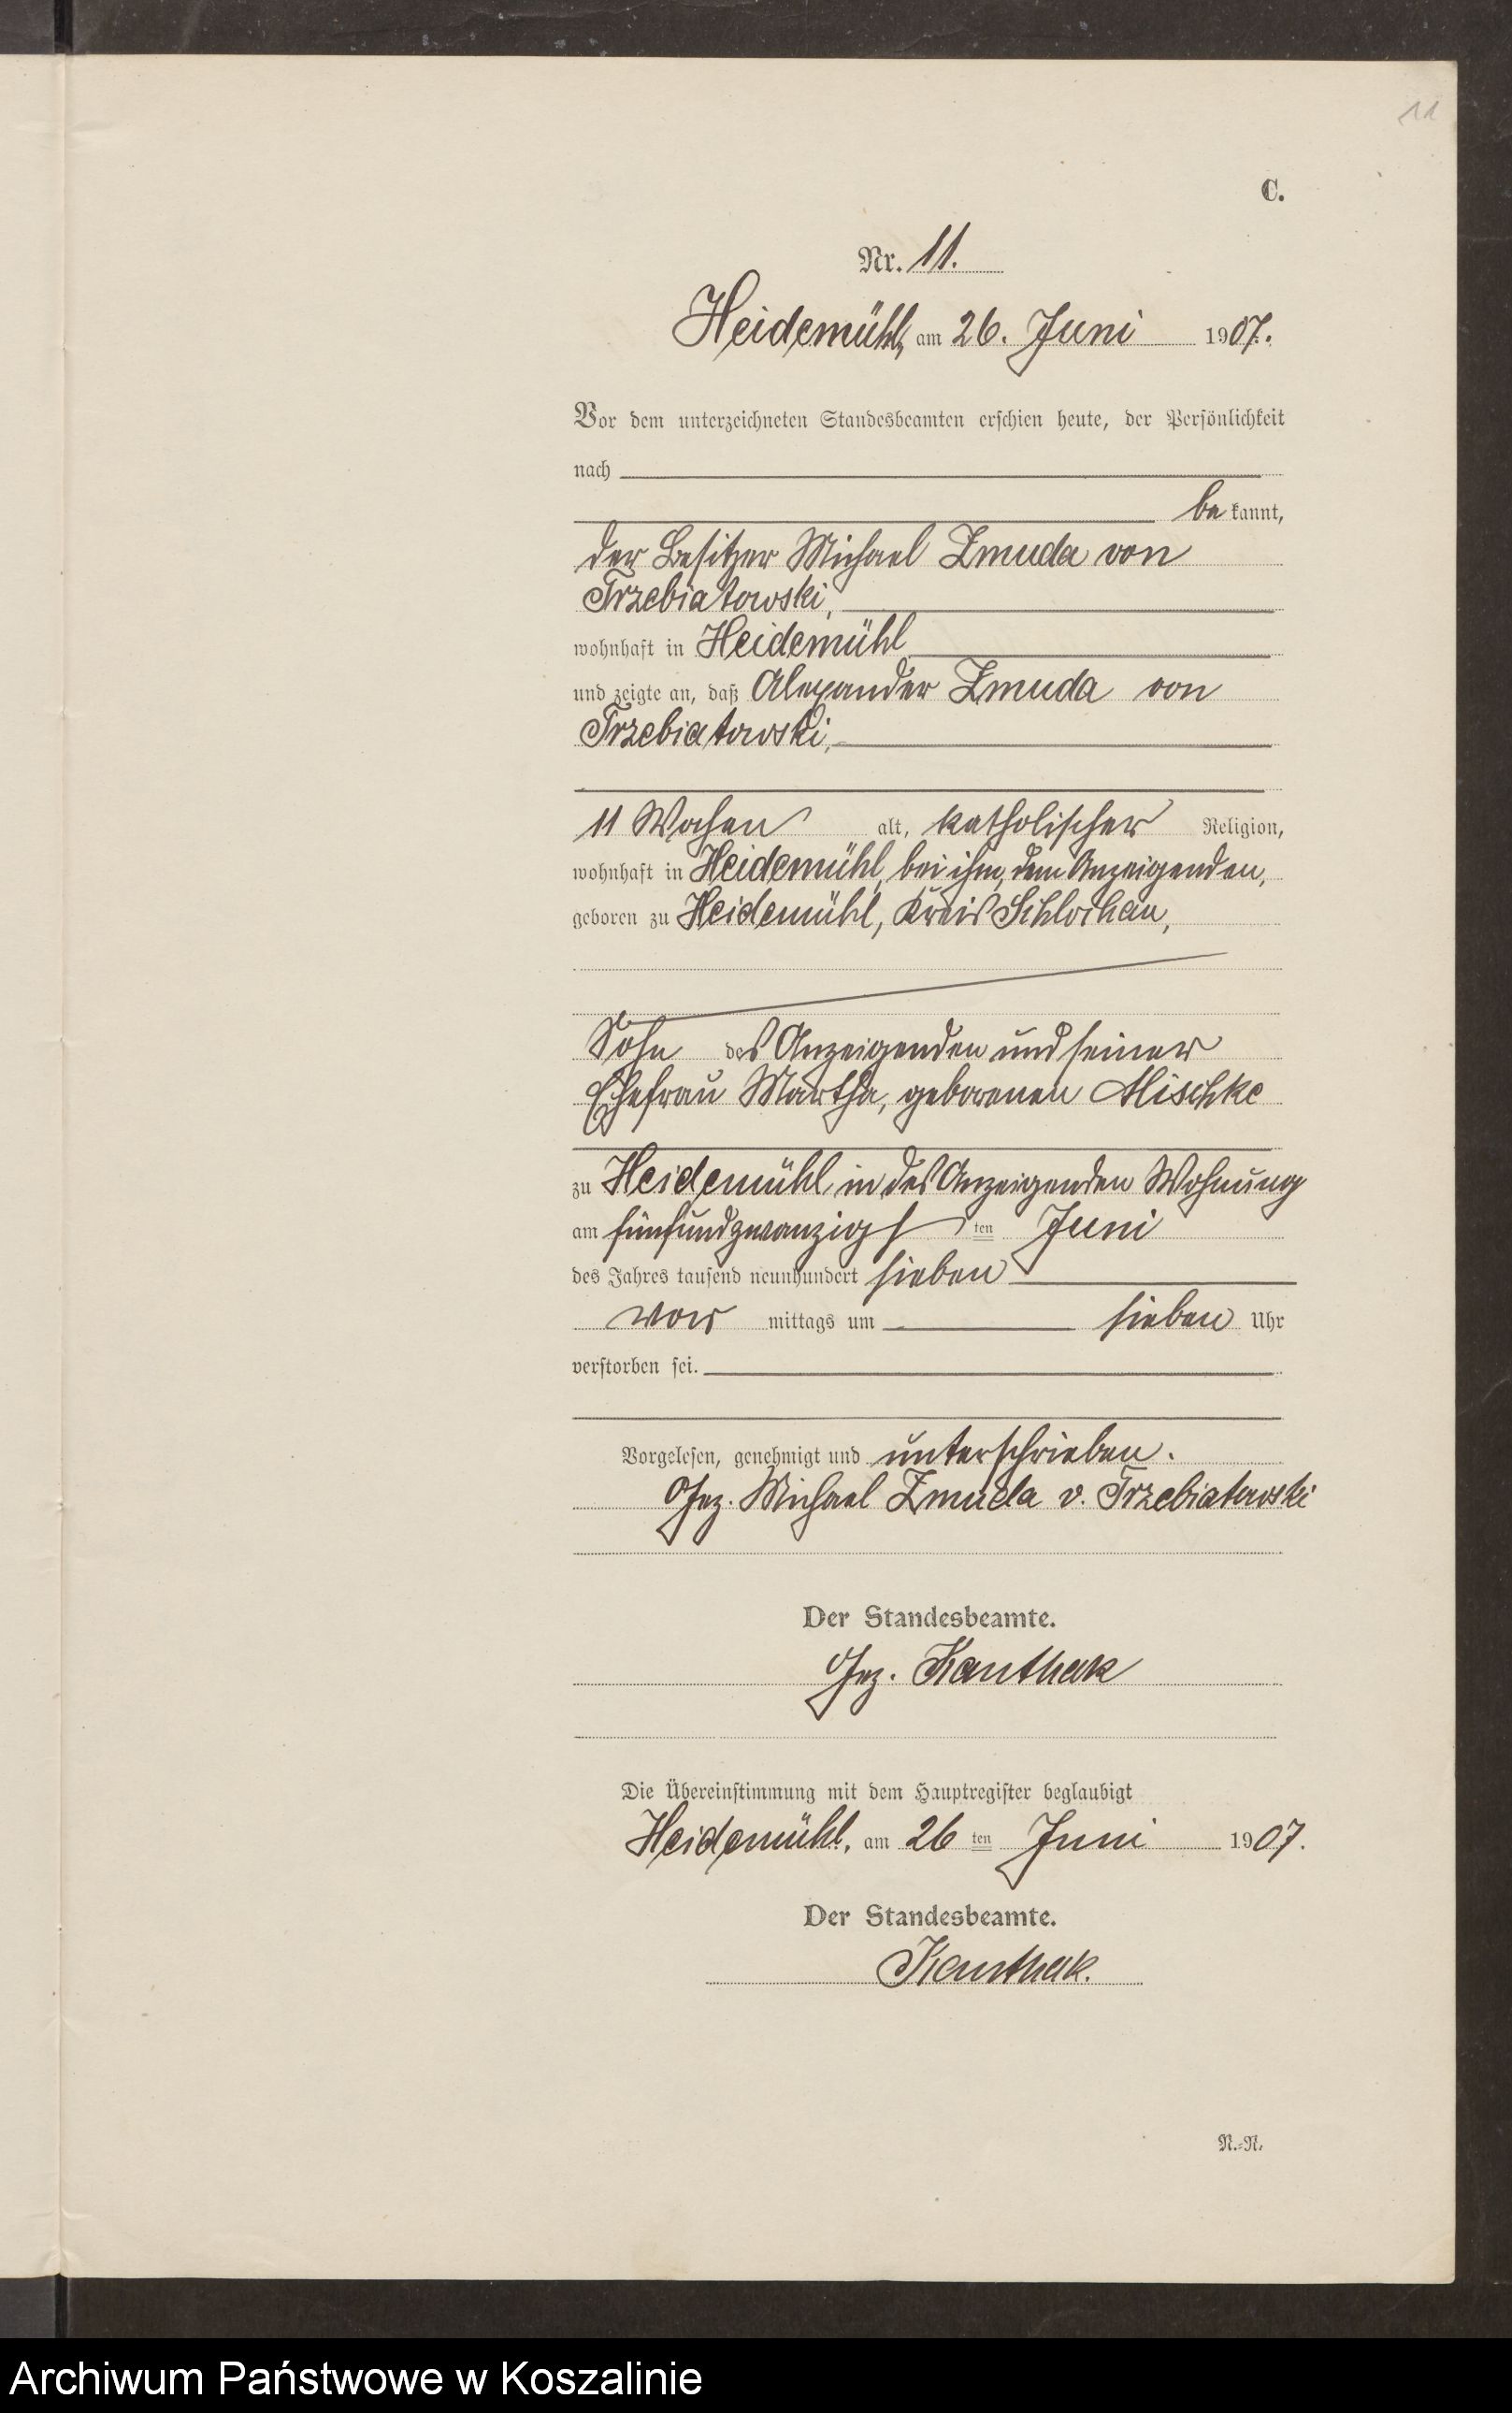 11
C.
Nr. 11.
Heidemühl, am 26. Juni 1907.
Vor dem unterzeichneten Standesbeamten erschien heute, der Persönlichkeit
nach
bekannt,
der Besitzer Michael Zmuda von
Trzebiatowski,
wohnhaft in Heidemühl
und zeigte an, daß Alexander Zmuda von
Trzebiatowski,
11 Wochen alt, katholischer Religion,
wohnhaft in Heidemühl, bei ihm, dem Anzeigenden,
geboren zu Heidemühl, Kreis Schlochau,
Sohn des Anzeigenden und seiner
Ehefrau Martha, geborenen Mischke
zu Heidemühl, in des Anzeigenden Wohnung
am fünfundzwanzigsten Juni
des Jahres tausend neunhundert sieben
vor mittags um sieben Uhr
verstorben sei.
Vorgelesen, genehmigt und unterschrieben.
Gez. Michael Zmuda v. Trzebiatowski
Der Standesbeamte.
Gez. Kanthak
Die Übereinstimmung mit dem Hauptregister beglaubigt
Heidemühl, am 26 ten Juni 1907.
Der Standesbeamte.
Kanthak.
N.-R.
Archiwum Państwowe w Koszalinie